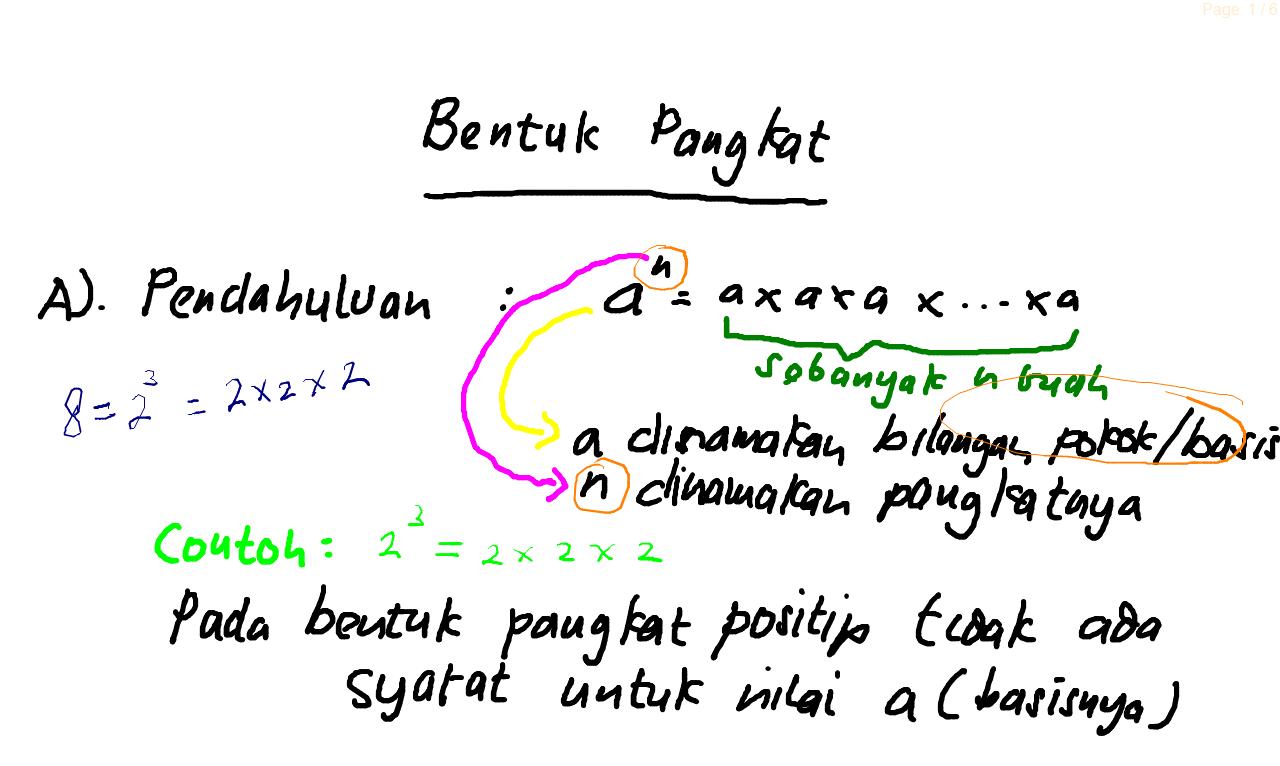 Page 1 / 6
Bentuk Pangkat
A). Pendahuluan : aⁿ = a x a x a x ... x a
sebanyak n buah
8 = 2³ = 2 x 2 x 2
a dinamakan bilangan pokok/basis
n dinamakan pangkatnya
Contoh : 2³ = 2 x 2 x 2
Pada bentuk pangkat positip tidak ada
syarat untuk nilai a (basisnya)